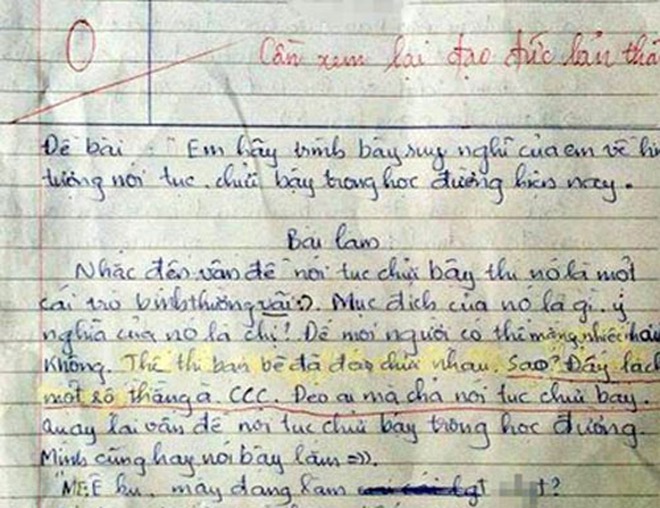 0
Cần xem lại đạo đức bản thâ
Đề bài : " Em hãy trình bày suy nghĩ của em về hiệ
tượng nói tục, chửi bậy trong học đường hiện nay.
Bài làm:
Nhắc đến vấn đề nói tục chửi bậy thì nó là một
cái trò bình thường vãi :). Mục đích của nó là gì, ý
nghĩa của nó là chi! Để mọi người có thể mắng nhiếc nhau
Không. Thế thì bạn bè đã đéo chửi nhau. Sao? Đấy là c
một số thằng à. CCC. Đéo ai mà chả nói tục chửi bậy.
Quay lại vấn đề nói tục chửi bậy trong học đường.
Mình cũng hay nói bậy lắm =)).
"MẸ ku, mày đang làm t?